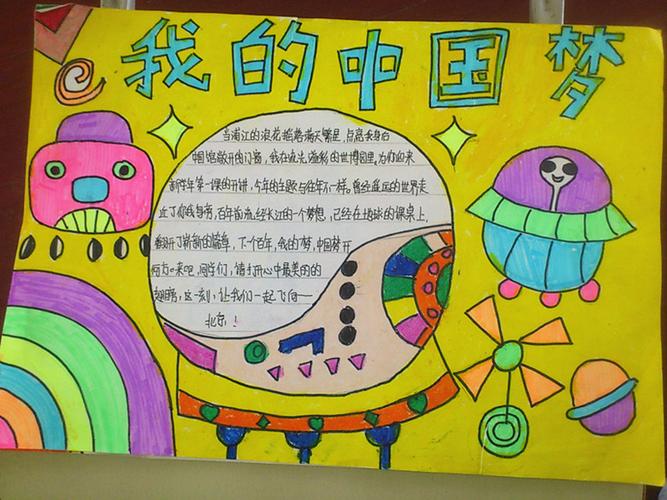 我的中国梦
当浦江的浪花摇撼满天繁星,点亮
中国馆敞开的门窗,我在流光溢彩的世博园里,为你们来
新学年第一课的开讲,今年的主题与往年不一样。曾经遥远的世界走
近了你我身旁,百年前流经长江的一个梦想,已经在地球的课桌上,
翻开了崭新的篇章,下个百年,我的梦,中国梦开
何方。来吧,同学们,请打开心中最美的的
翅膀,这一刻,让我们一起飞向——
北京!